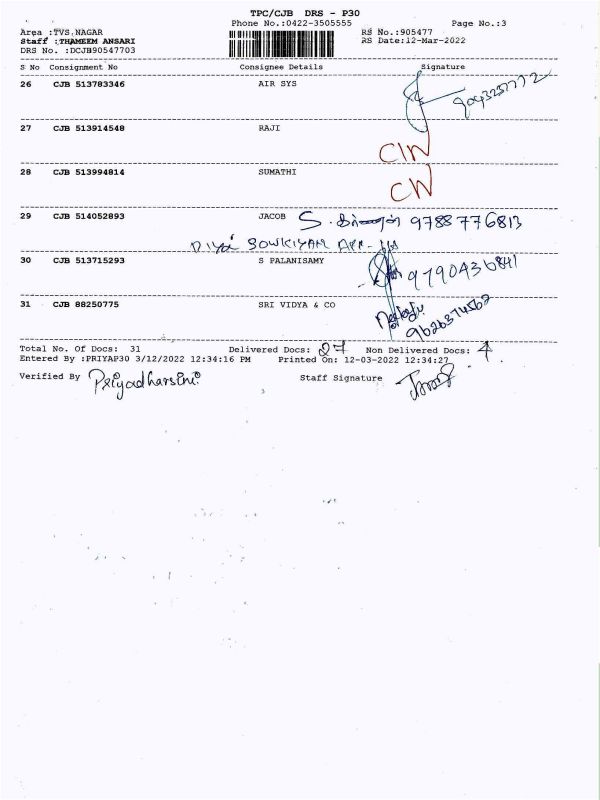 TPC/CJB DRS - P30
Phone No.:0422-3505555 Page No.:3
Area :TVS.NAGAR RS No.:905477
Staff :THAMEEM ANSARI RS Date:12-Mar-2022
DRS No. :DCJB90547703
S No Consignment No Consignee Details Signature
26 CJB 513783346 AIR SYS
9043257772
27 CJB 513914548 RAJI
CIW
28 CJB 513994814 SUMATHI
CW
29 CJB 514052893 JACOB S. 9788776813
SOWKIYAM APP
30 CJB 513715293 S PALANISAMY
9790436841
31 CJB 88250775 SRI VIDYA & CO
9626374562
Total No. Of Docs: 31 Delivered Docs: 27 Non Delivered Docs: 4
Entered By :PRIYAP30 3/12/2022 12:34:16 PM Printed On: 12-03-2022 12:34:27
Verified By Priyadharsini Staff Signature